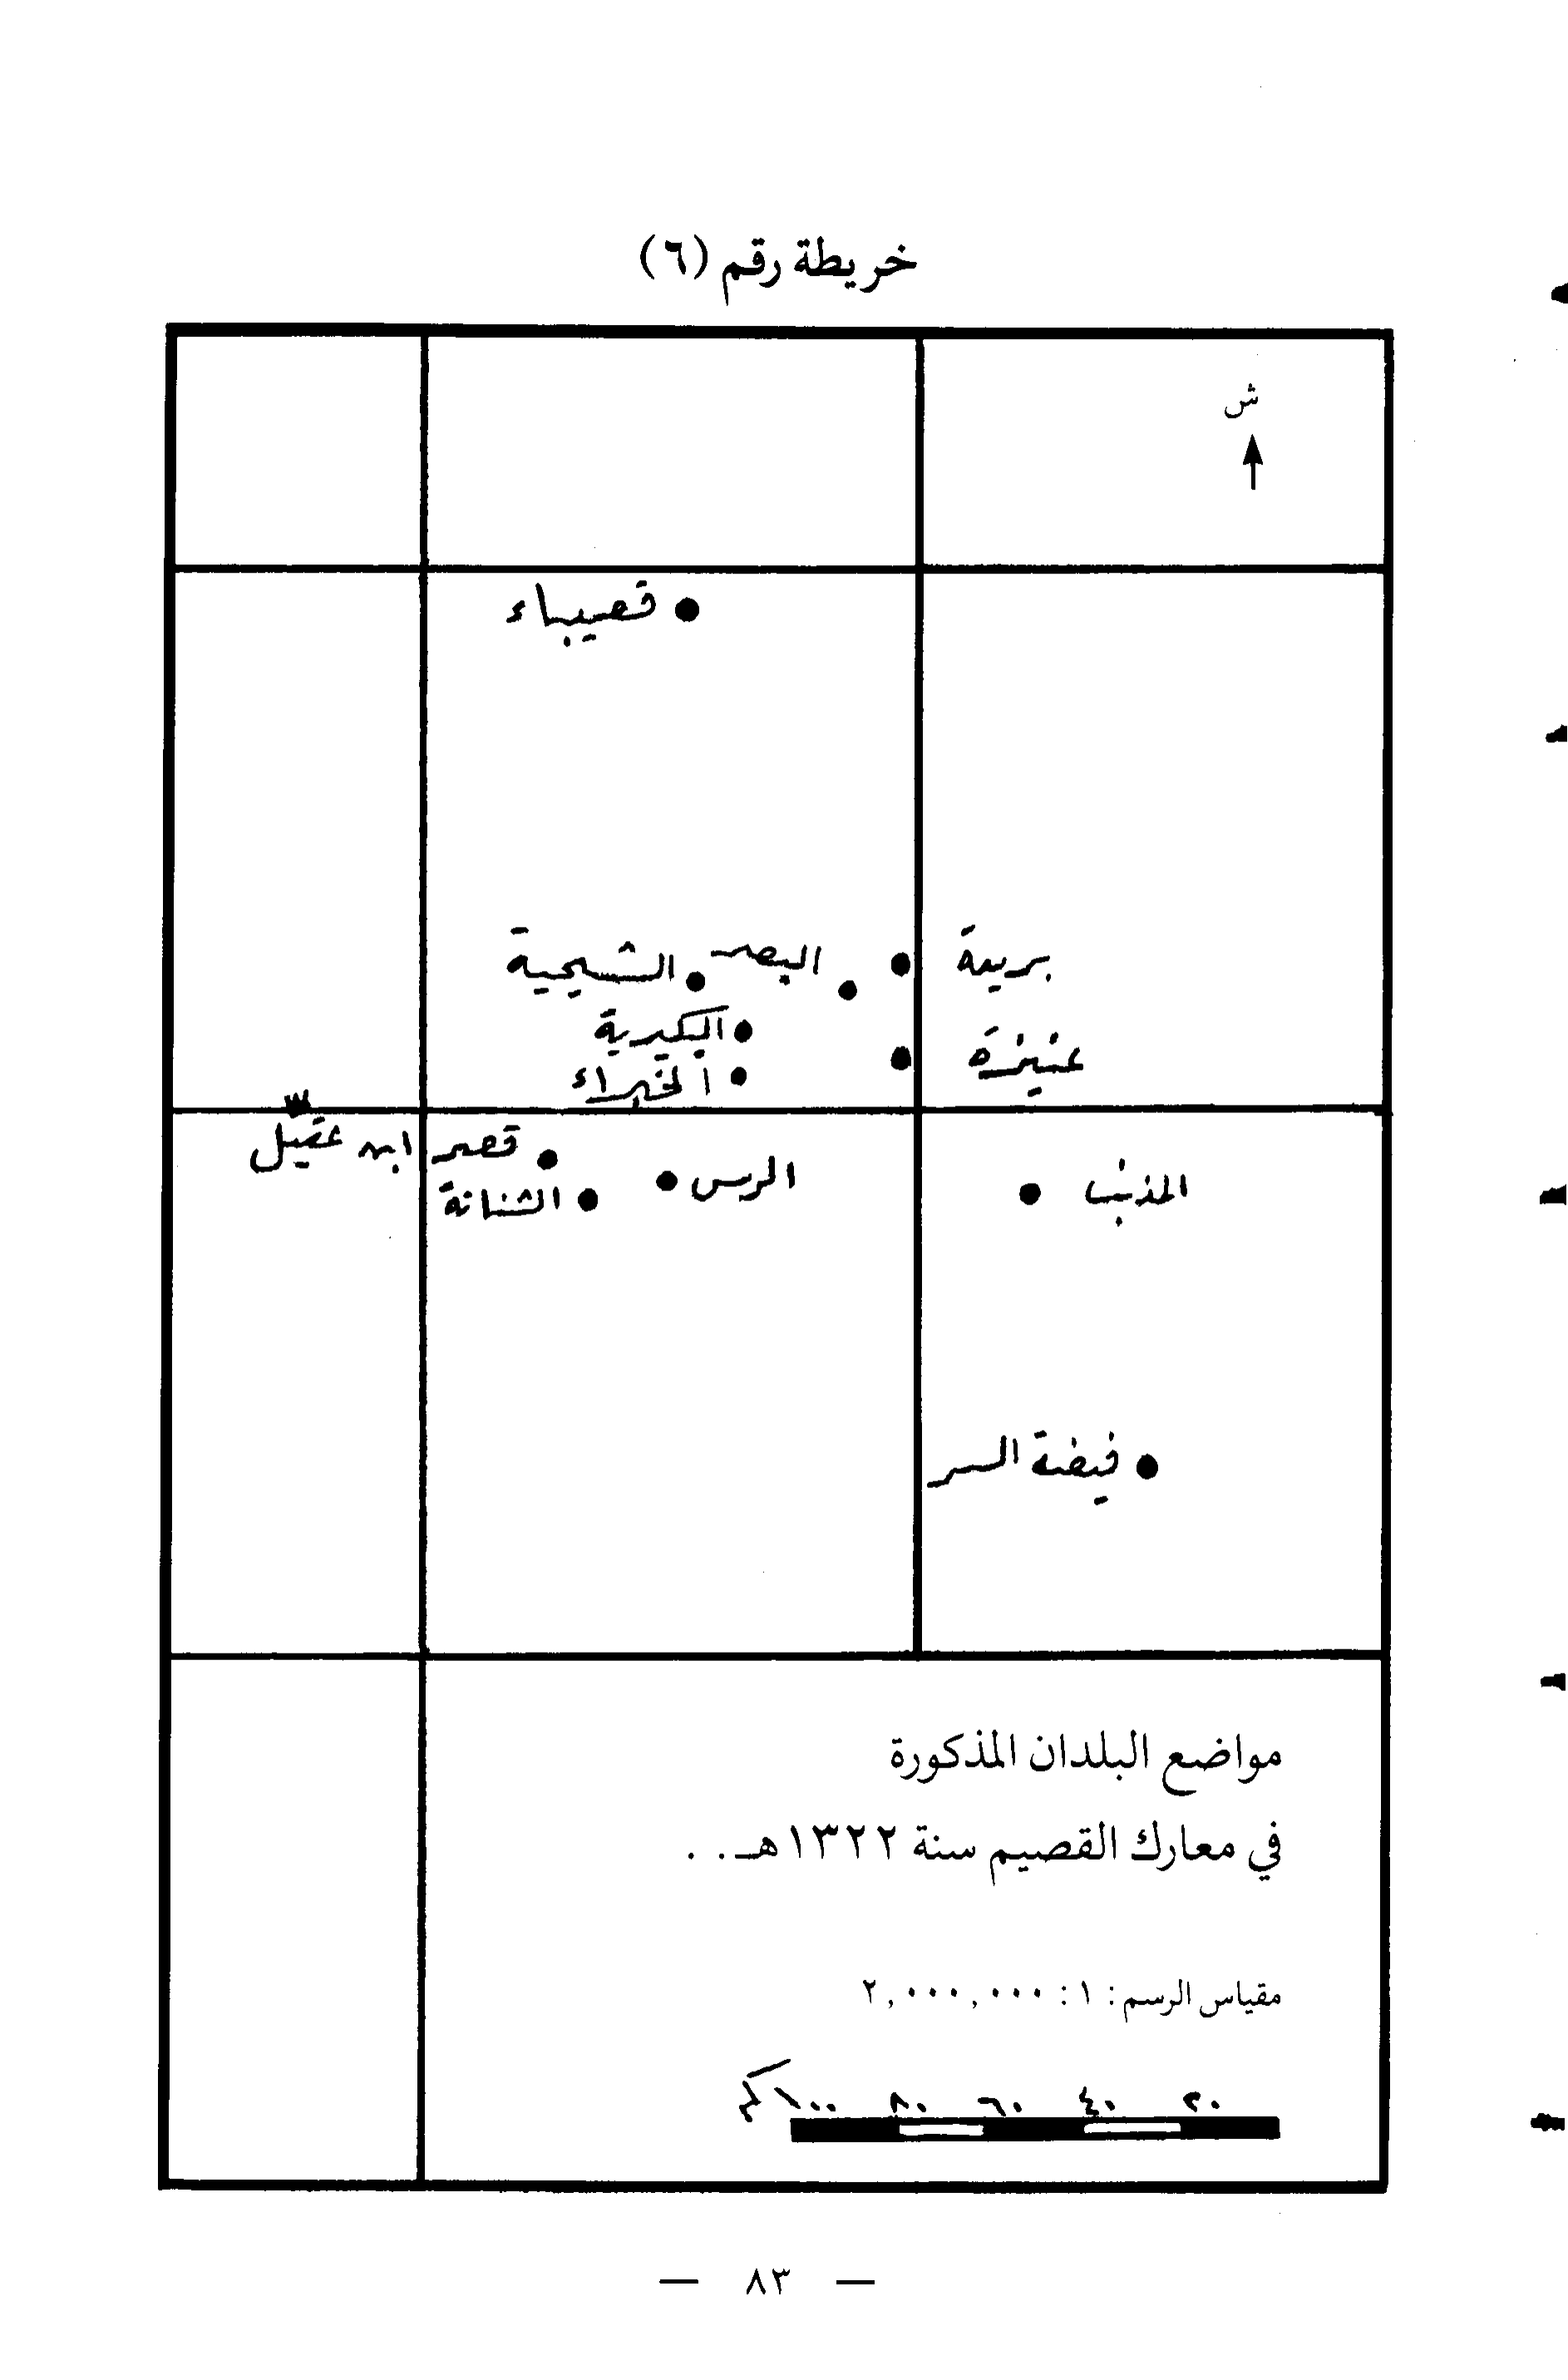 خريطة رقم (٦)
ش
قصيباء
بريدة
البصر
الشيحية
عنيزة
البكيرية
الخبراء
قصر ابن عقيّل
الرس
الشنانة
المذنب
فيضة السر
مواضع البلدان المذكورة
في معارك القصيم سنة ١٣٢٢هـ . .
مقياس الرسم : ١ : ٢,٠٠٠,٠٠٠
٢٠ ٤٠ ٦٠ ٨٠ ١٠٠ كم
— ٨٣ —